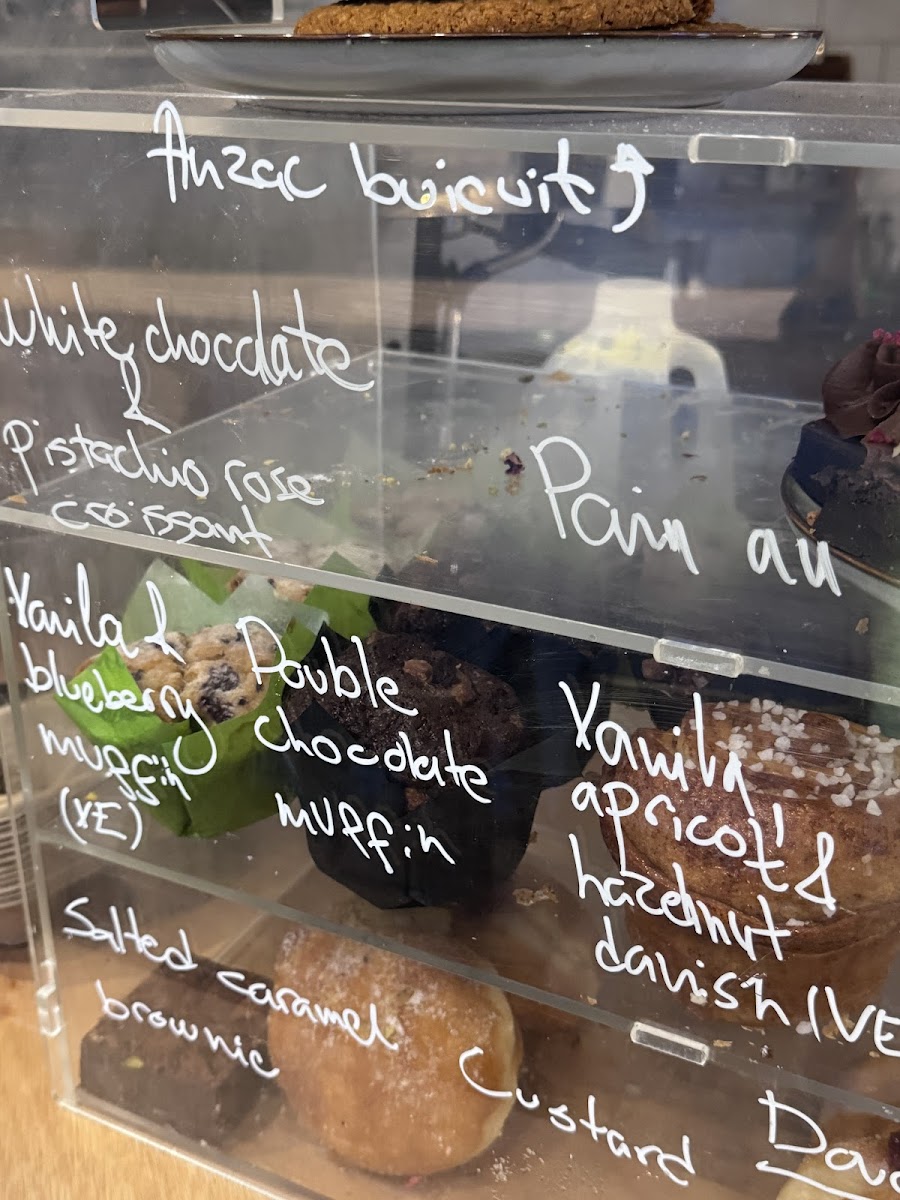 Anzac buicuit
White chocolate
&
Pistachio rose
croissant
Pain au
Vanila &
blueberry
muffin
(VE)
Double
chocolate
muffin
Vanila
apricot &
hazelnut
davish (VE
Salted caramel
brownie
Custard